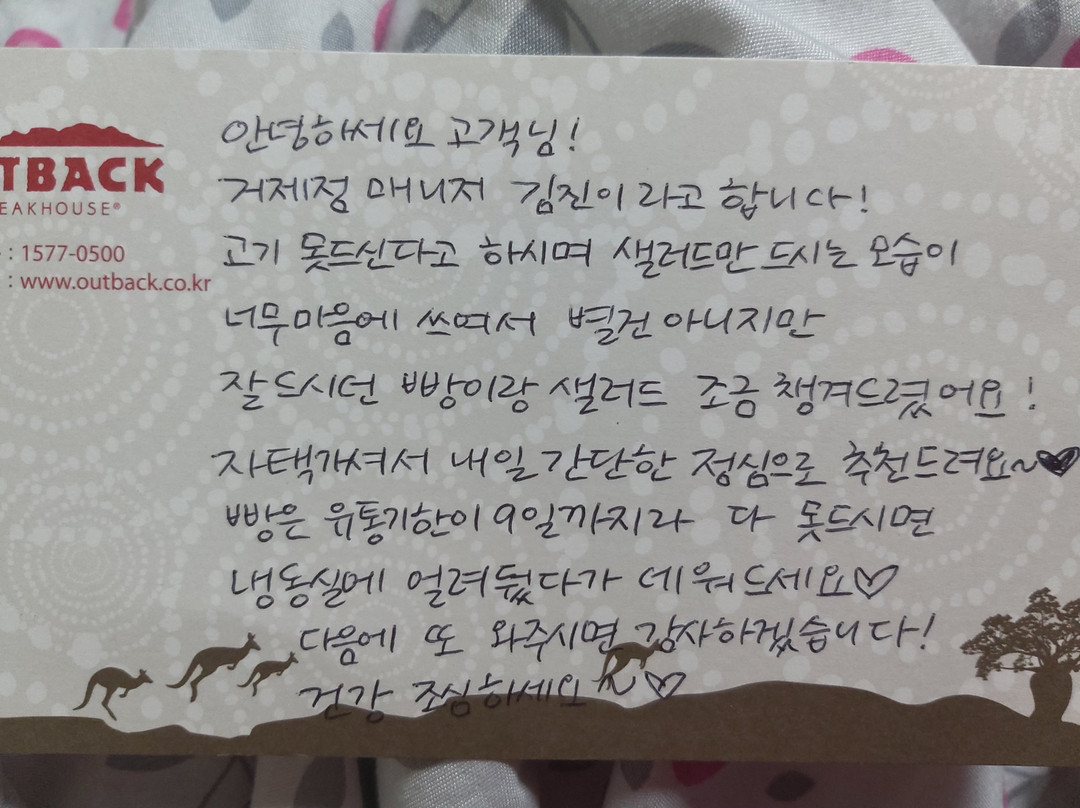 TBACK
EAKHOUSE®
: 1577-0500
: www.outback.co.kr
안녕하세요 고객님!
거제점 매니저 김진이라고 합니다!
고기 못드신다고 하시며 샐러드만 드시는 모습이
너무 마음에 쓰여서 별건 아니지만
잘 드시던 빵이랑 샐러드 조금 챙겨드렸어요!
자택가셔서 내일 간단한 점심으로 추천드려요~♥
빵은 유통기한이 9일까지라 다 못드시면
냉동실에 얼려뒀다가 데워드세요♡
다음에 또 와주시면 감사하겠습니다!
건강 조심하세요~♡